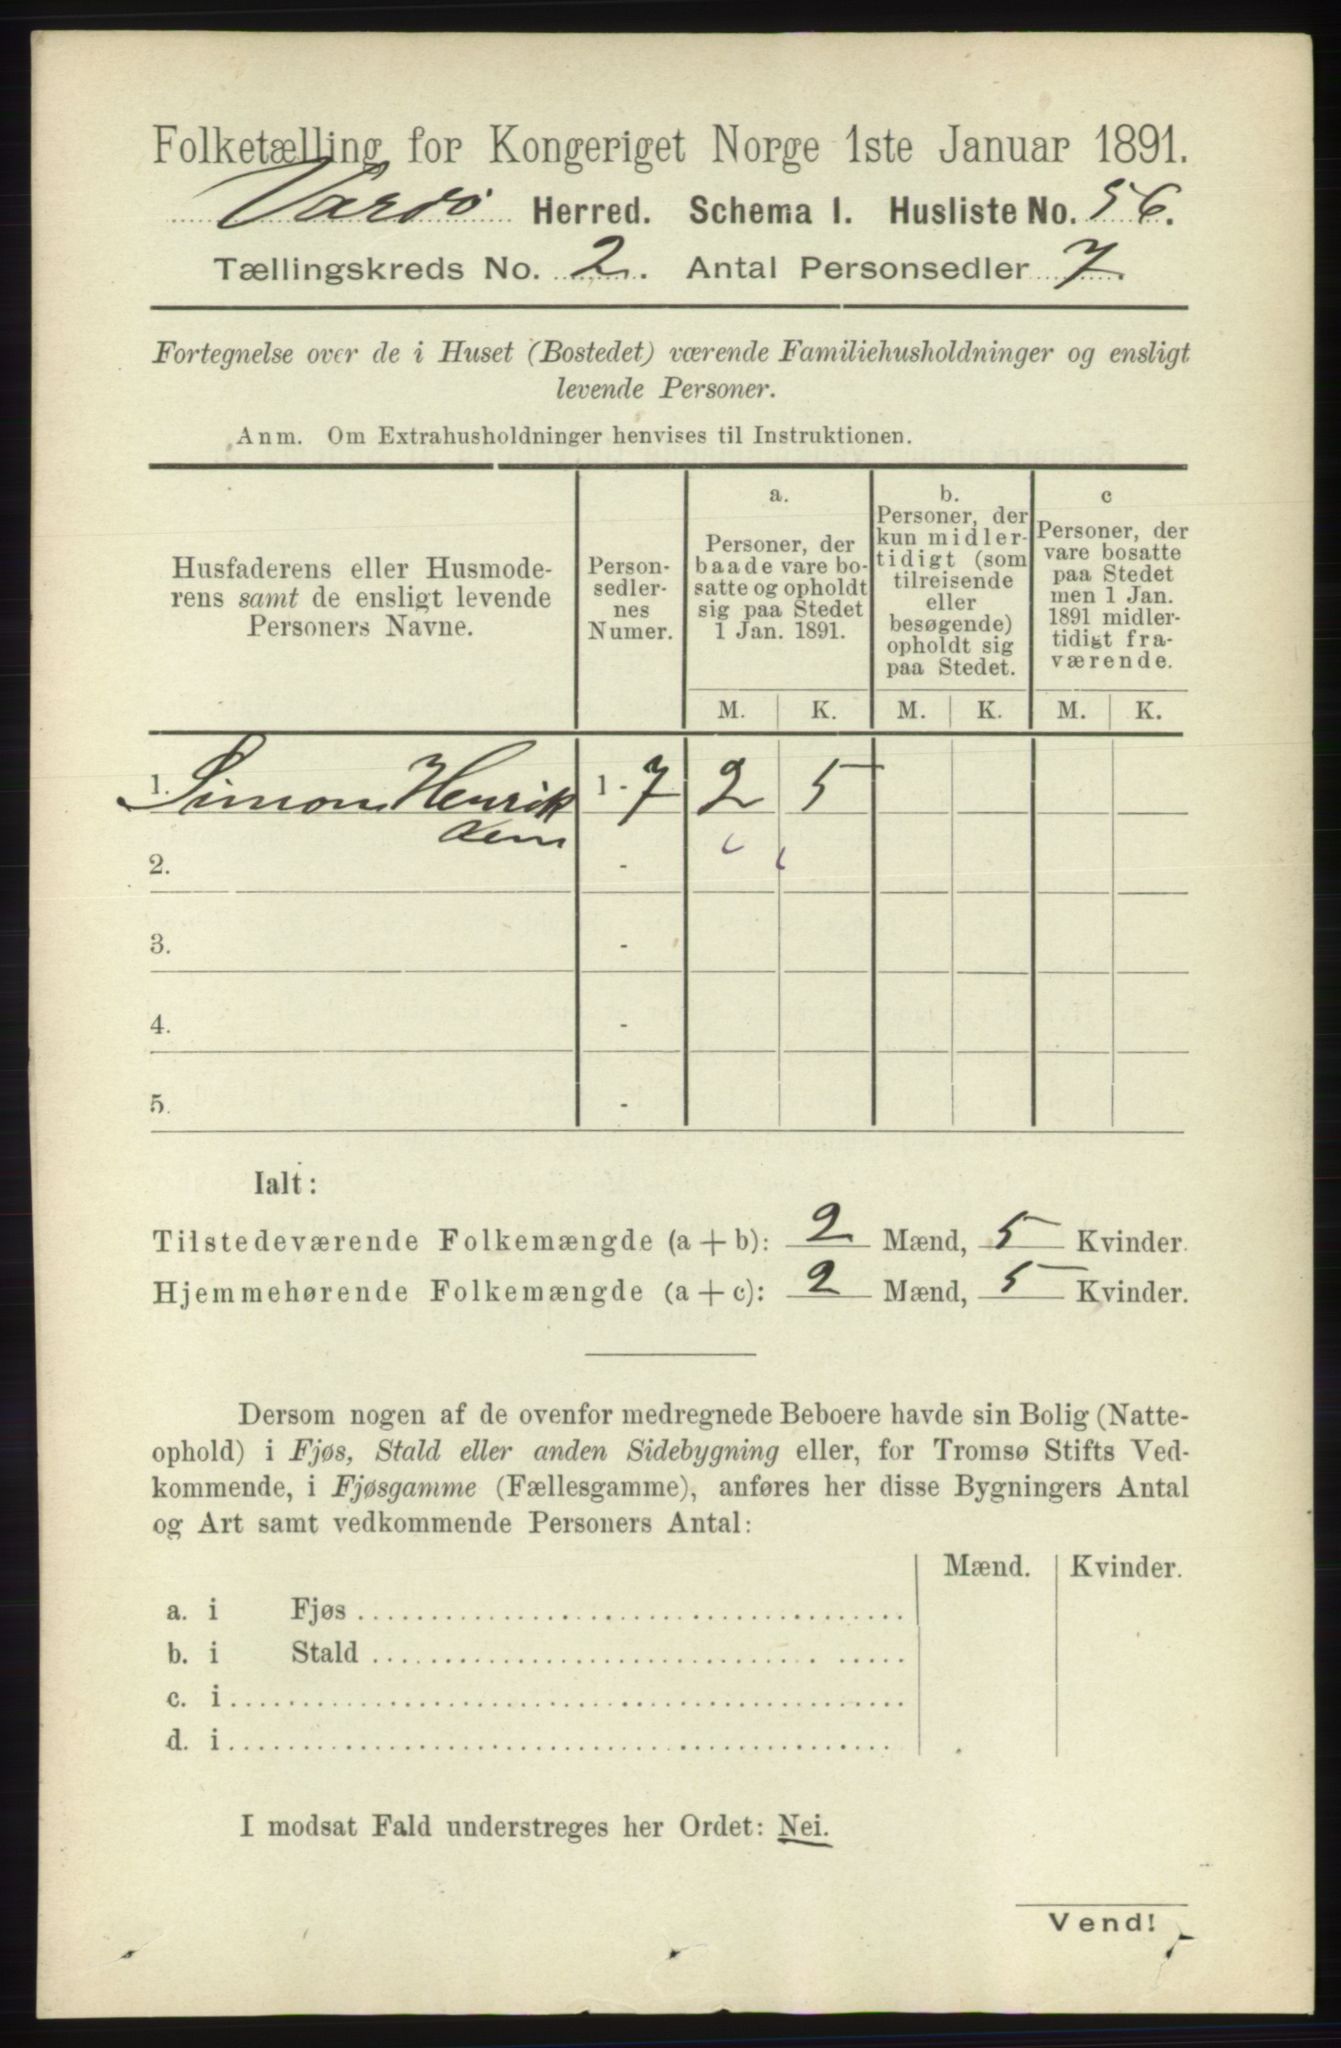 Folketælling for Kongeriget Norge 1ste Januar 1891.
Vardø Herred. Schema 1. Husliste No. 56.
Tællingskreds No. 2. Antal Personsedler 7
Fortegnelse over de i Huset (Bostedet) værende Familiehusholdninger og ensligt
levende Personer.
Anm. Om Extrahusholdninger henvises til Instruktionen.
Husfaderens eller Husmode-
rens samt de ensligt levende
Personers Navne.
Person-
sedler-
nes
Numer.
a.
Personer, der
baade vare bo-
satte og opholdt
sig paa Stedet
1 Jan. 1891.
b.
Personer, der
kun midler-
tidigt (som
tilreisende
eller
besøgende)
opholdt sig
paa Stedet.
c
Personer, der
vare bosatte
paa Stedet
men 1 Jan.
1891 midler-
tidigt fra-
værende.
M. K. M. K. M. K.
1. Simon Henrik 1 - 7 2 5
2. -
3. -
4. -
5. -
Ialt:
Tilstedeværende Folkemængde (a + b): 2 Mænd, 5 Kvinder.
Hjemmehørende Folkemængde (a + c): 2 Mænd, 5 Kvinder.
Dersom nogen af de ovenfor medregnede Beboere havde sin Bolig (Natte-
ophold) i Fjøs, Stald eller anden Sidebygning eller, for Tromsø Stifts Ved-
kommende, i Fjøsgamme (Fællesgamme), anføres her disse Bygningers Antal
og Art samt vedkommende Personers Antal:
Mænd. Kvinder.
a. i Fjøs
b. i Stald
c. i
d. i
I modsat Fald understreges her Ordet: Nei.
Vend!